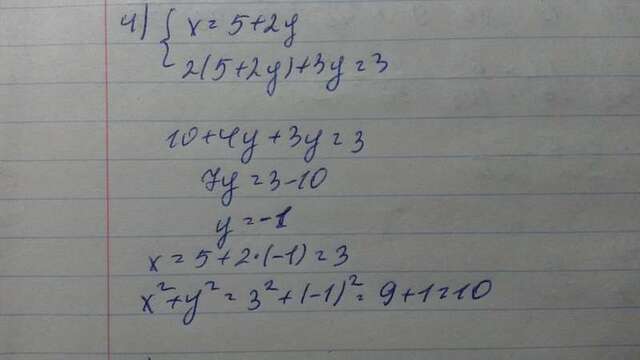 4) { x = 5+2y
2(5+2y)+3y=3
10+4y+3y=3
7y=3-10
y=-1
x=5+2·(-1)=3
x²+y²=3²+(-1)²=9+1=10